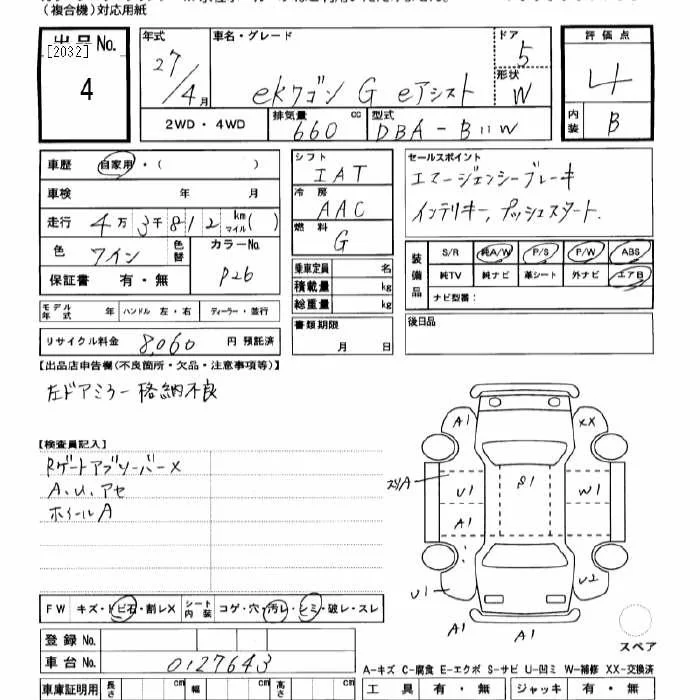 (複合機)対応用紙
出品No. [2032] 4
年式 27/4月
車名・グレード ekワゴン G eアシスト
ドア 5
形状 W
評価点 4
内装 B
2WD・4WD
排気量 660 cc
型式 DBA-B11W
車歴 自家用・( )
車検 年 月
走行 4万3千812km マイル( )
色 ワイン 色替
カラーNo. P26
保証書 有・無
モデル年式 年 ハンドル 左・右 ディーラー・並行
リサイクル料金 8,060 円 預託済
シフト IAT
冷房 AAC
燃料 G
乗車定員 名
積載量 kg
総重量 kg
書類期限 月 日
セールスポイント
エマージェンシーブレーキ
インテリキー, プッシュスタート.
装備品 S/R 純A/W P/S P/W ABS
純TV 純ナビ 革シート 外ナビ エアB
ナビ型番:
後日品
【出品店申告欄(不良箇所・欠品・注意事項等)】
左ドアミラー格納不良
【検査員記入】
Rゲートアブソーバー×
A、U、アセ
ホイールA
A1 XX
スリA U1 S1 W1
A1
U1 U2
A1 A1
スペア
FW キズ・トビ石・割レX シート内装 コゲ・穴・汚レ・シミ・破レ・スレ
登録No.
車台No. 0127643
A-キズ C-腐食 E-エクボ S-サビ U-凹ミ W-補修 XX-交換済
車庫証明用 長さ cm 幅 cm 高さ cm
工具 有・無 ジャッキ 有・無